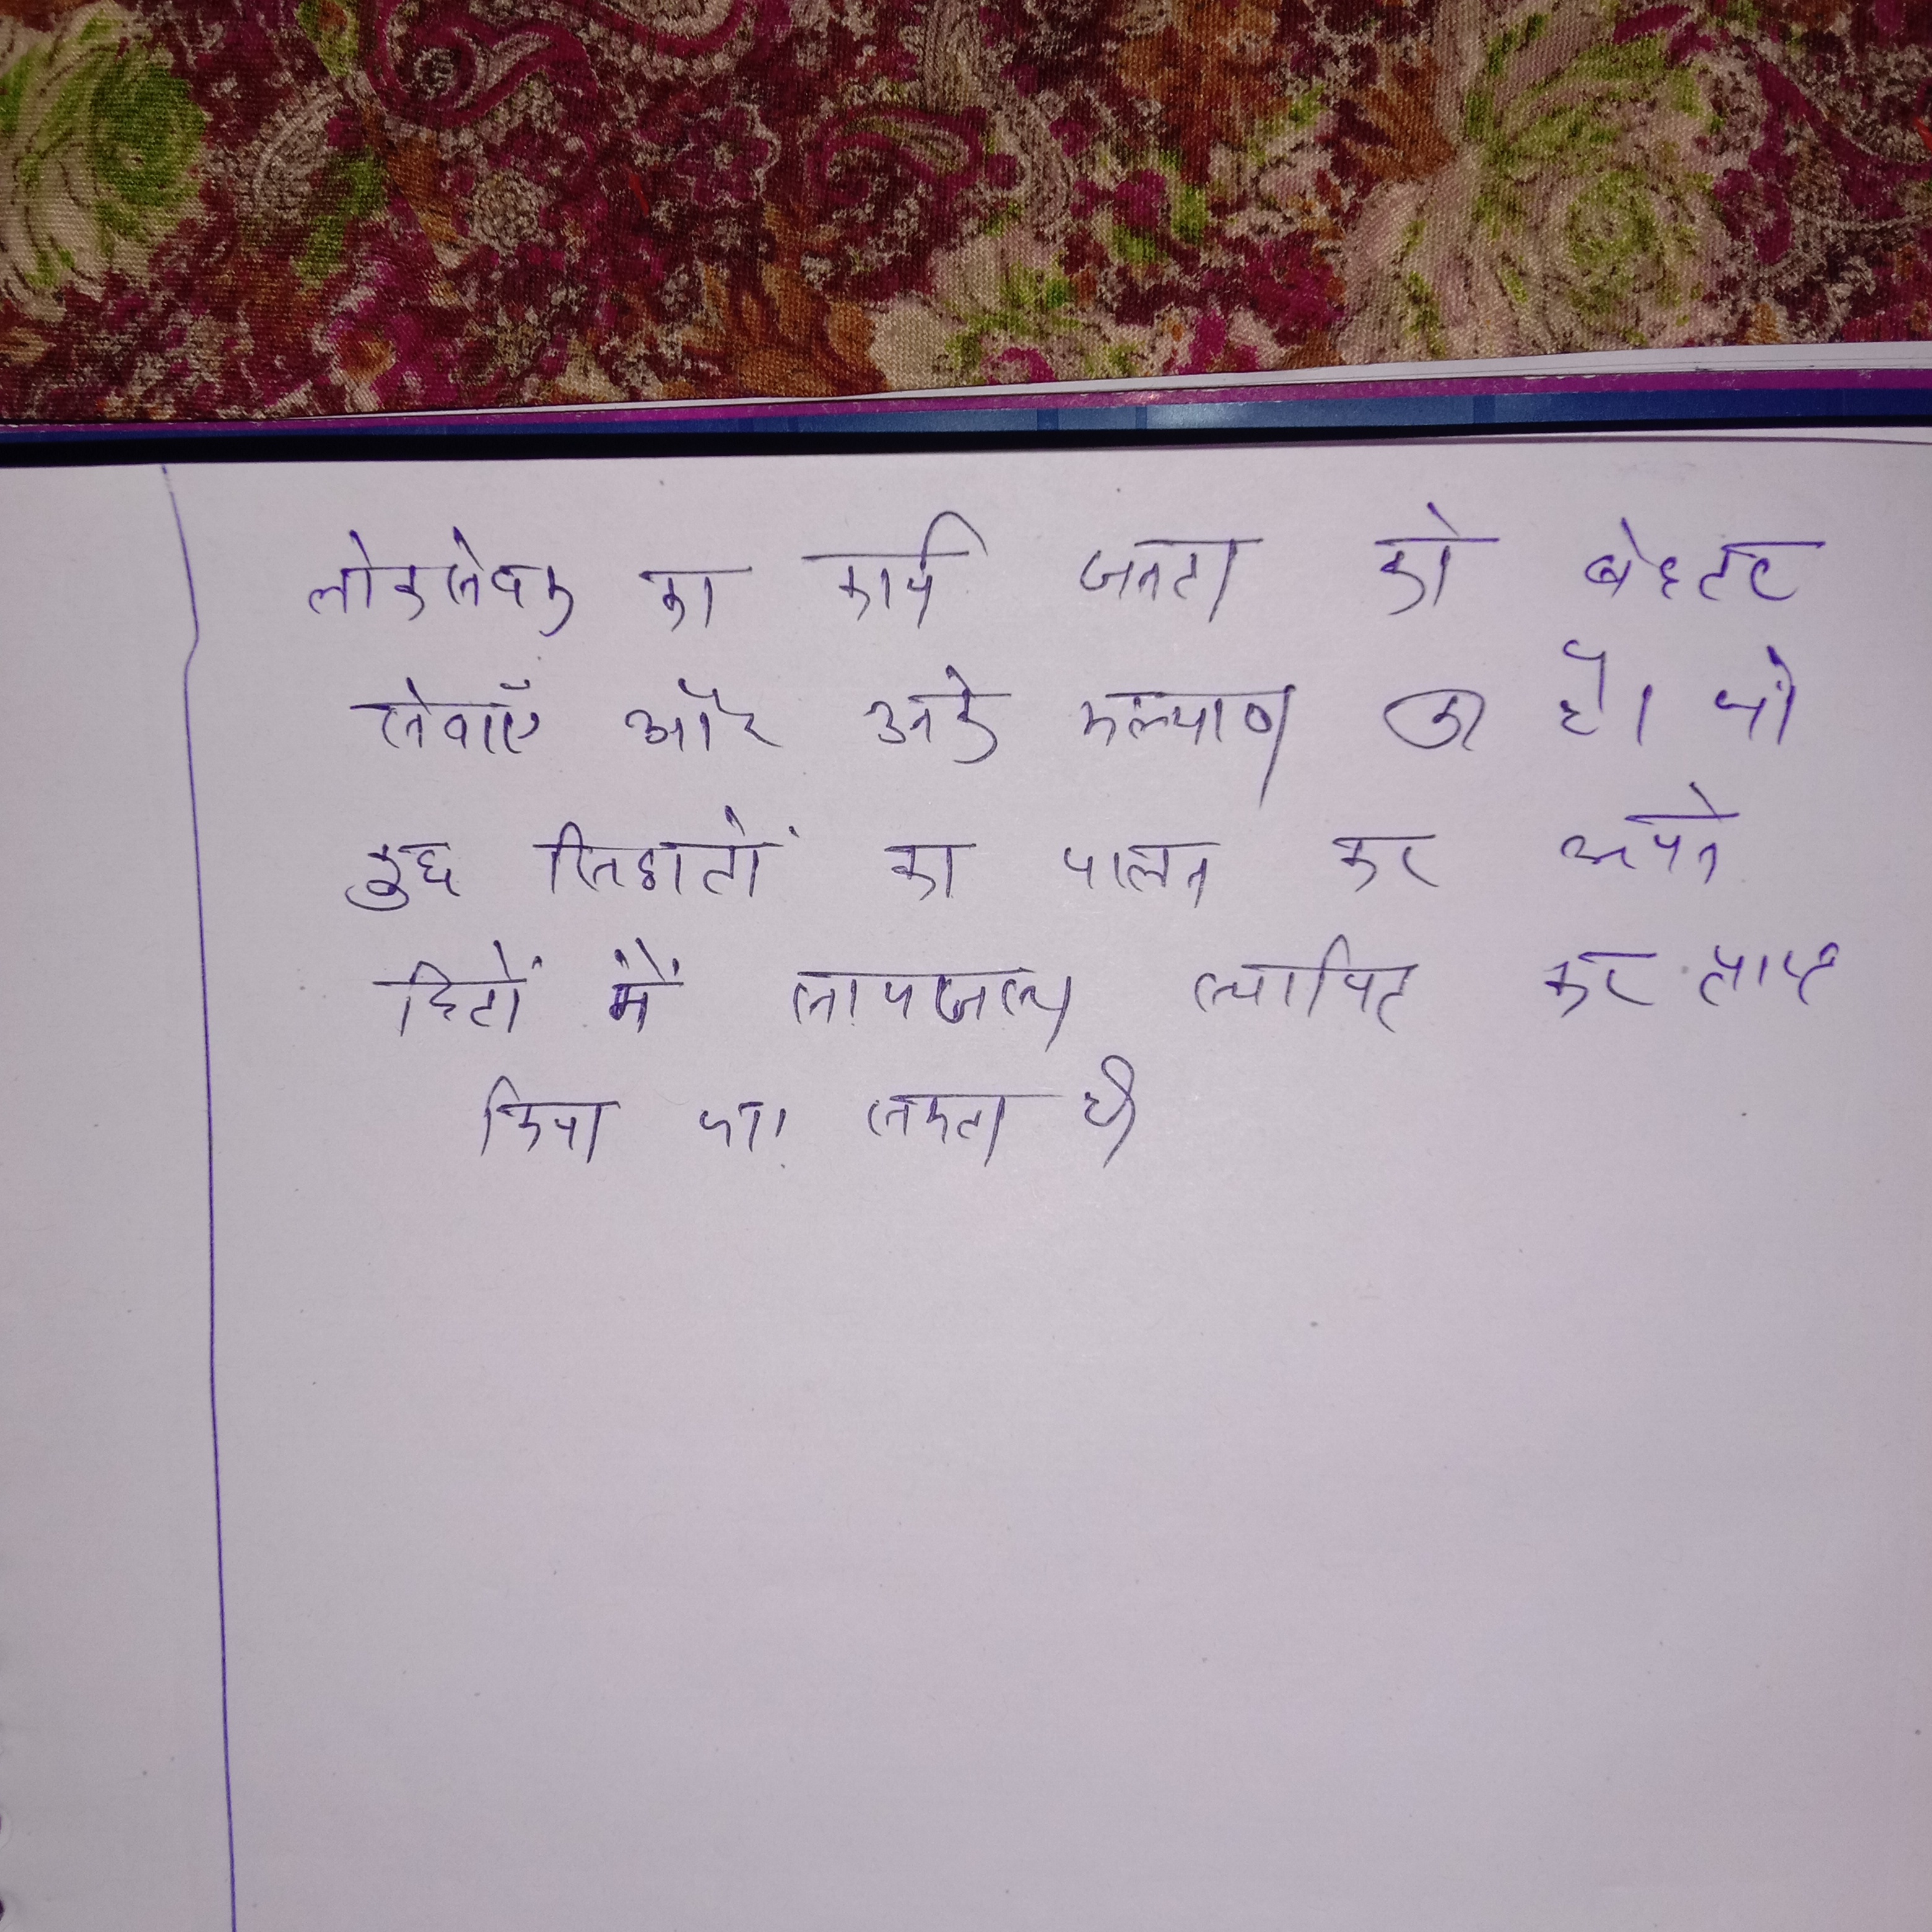 लोकसेवक का कार्य जनता को बेहतर
सेवाएँ और उनके कल्याण का है। जो
कुछ सिद्धातों का पालन कर अपने
हितों में सामंजस्य स्थापित कर
किया जा सकता है